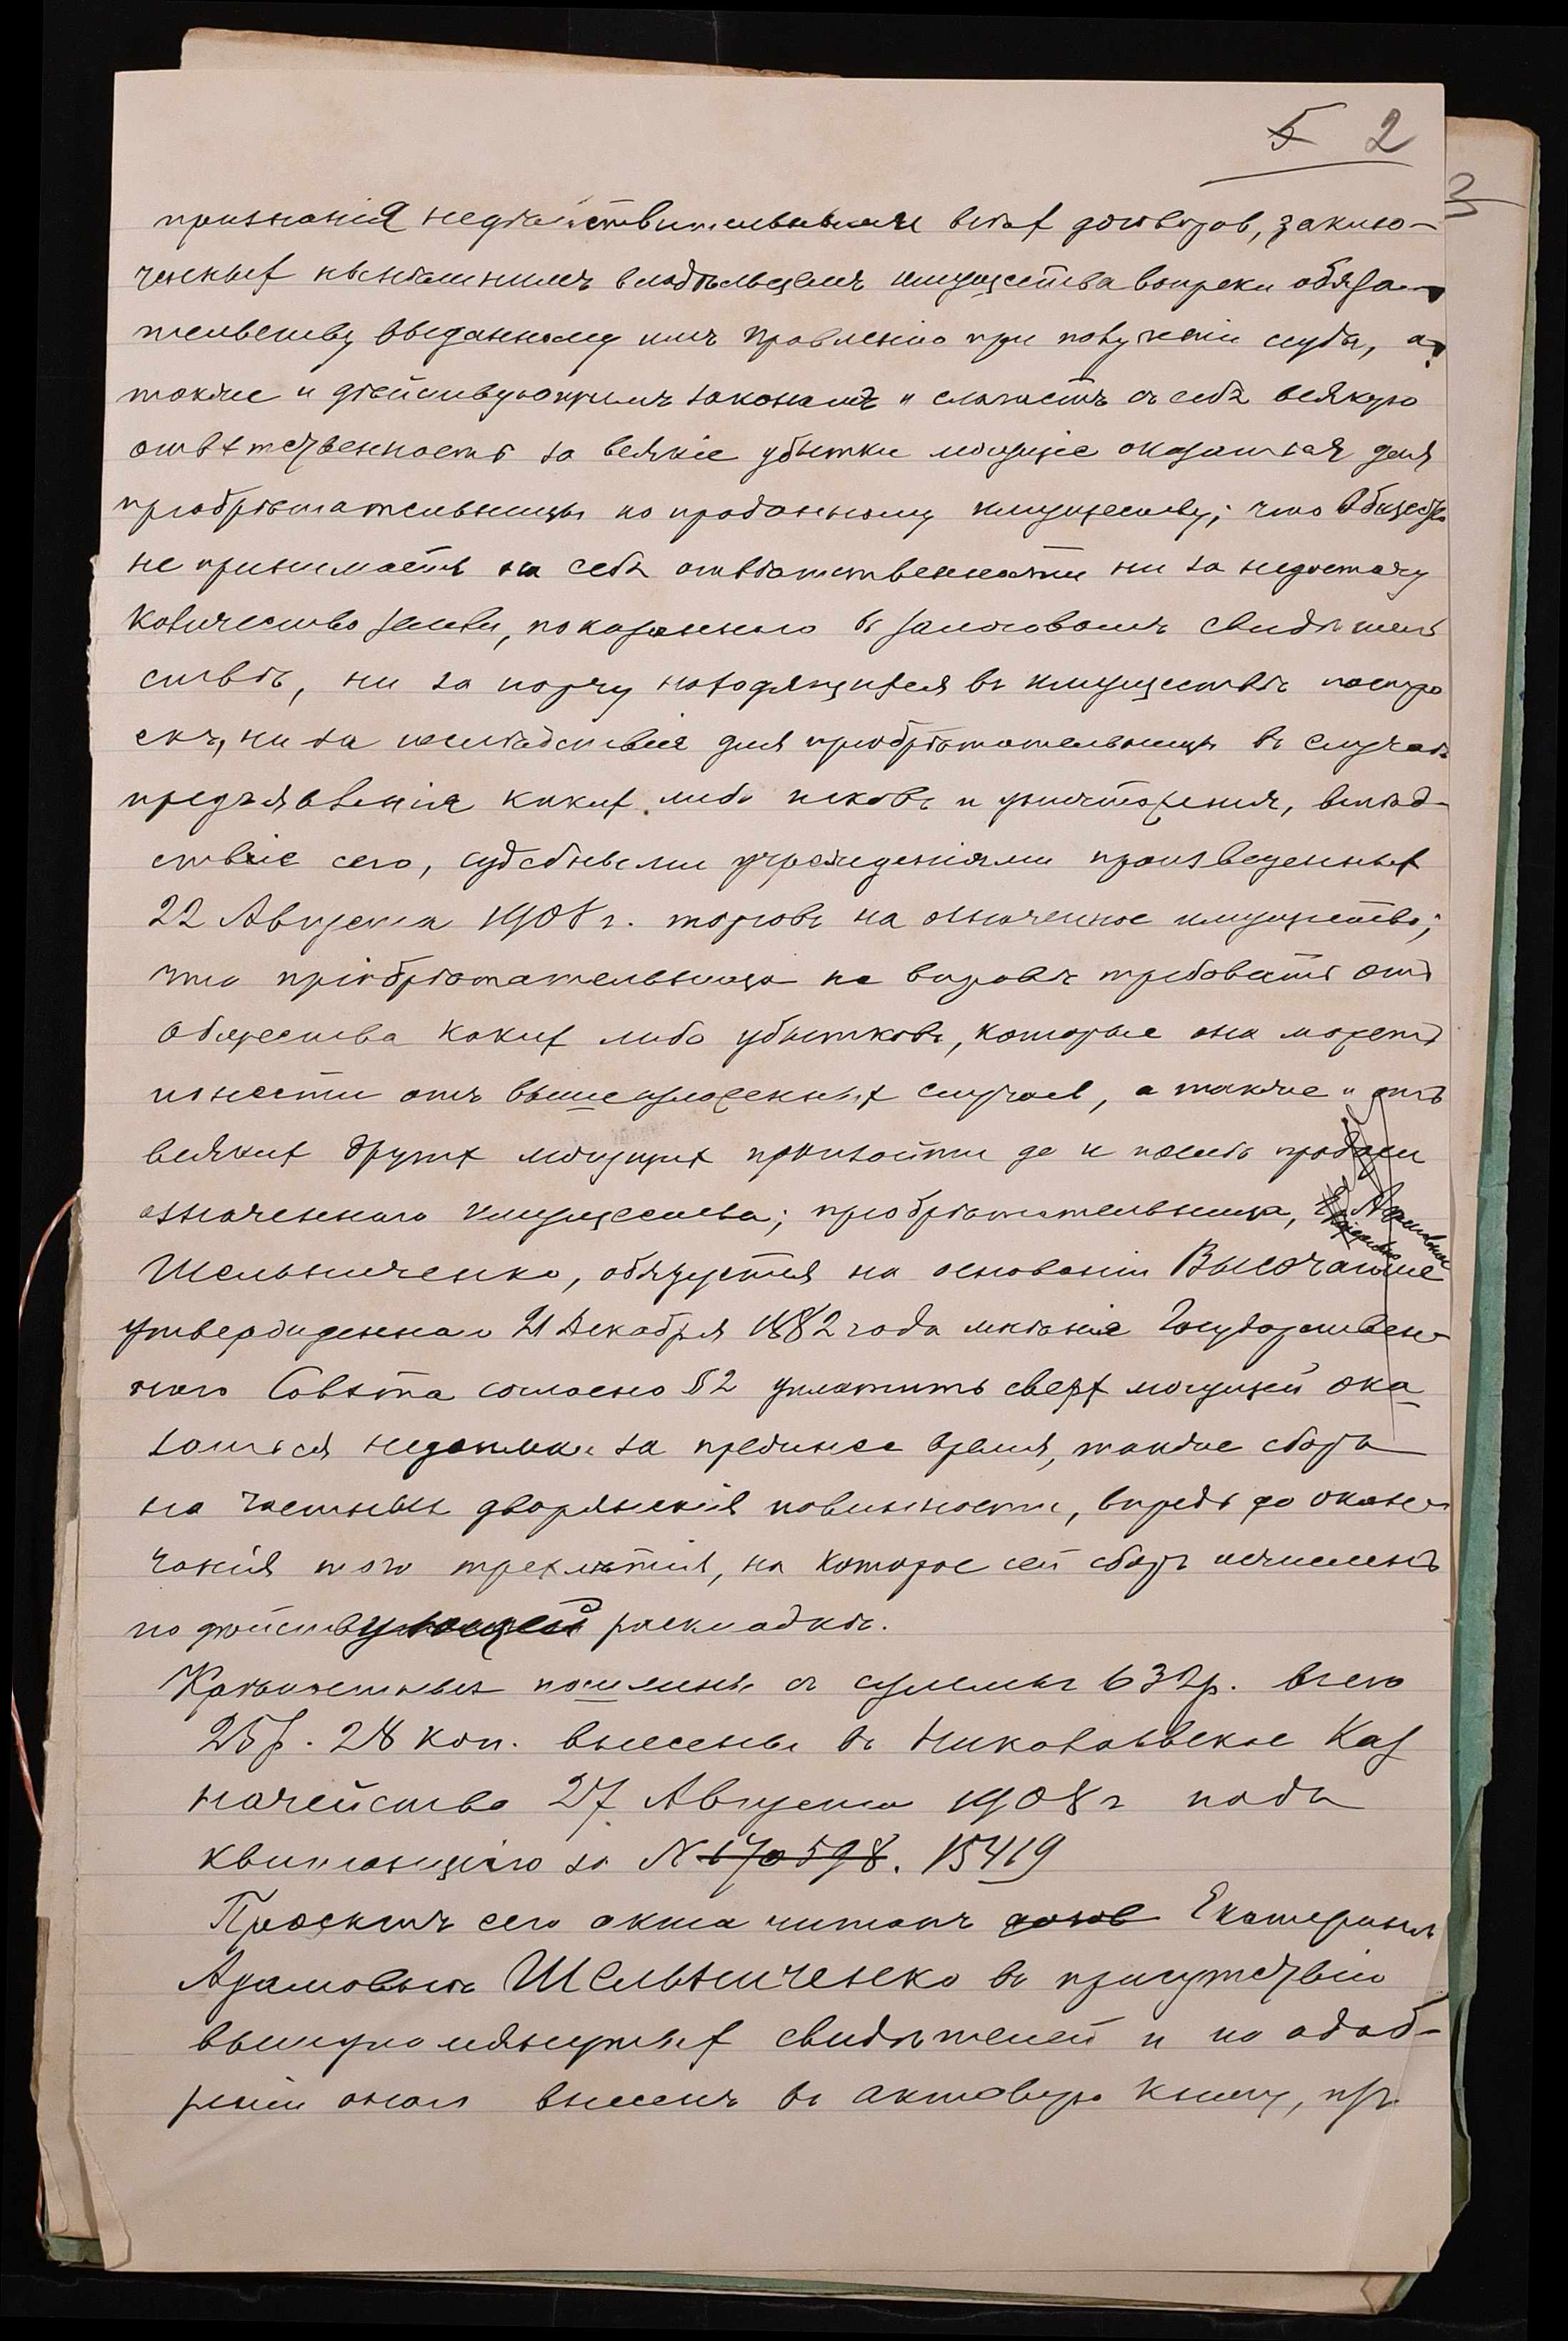 5 2
3
признанія недѣйствительными всѣхъ договоровъ, заклю-
ченныхъ нынѣшнимъ владѣльцемъ имущества вопреки обяза-
тельству выданному имъ Правленію при полученіи ссуды, а
также и дѣйствующимъ законамъ и слагаетъ съ себя всякую
отвѣтственность за всякіе убытки могущіе оказаться для
пріобрѣтательницы по проданному имуществу; что Общество
не принимаетъ на себя отвѣтственности ни за недостачу
количество земли, показанного въ залоговомъ свидѣтель
ствѣ, ни за порчу находящихся въ имуществѣ постро
екъ, ни за послѣдствія для пріобрѣтательницы въ случаѣ
предъявленія какихъ либо исковъ и уничтоженія, вслѣд-
ствіе сего, судебными учрежденіями произведенныхъ
22 Августа 1908 г. торговъ на означенное имущество;
что пріобрѣтательница не вправѣ требовать отъ
Общества какихъ либо убытковъ, которые она можетъ
понести отъ вышеизложенныхъ случаевъ, а также и отъ
всякихъ другихъ могущихъ произойти до и послѣ продажи
означенного имущества; пріобрѣтательница,
Шельниченко, обязуется на основаніи Высочайше
утвержденнаго 21 Декабря 1882 года мнѣнія Государствен-
ного Совѣта согласно § 2 уплатить сверхъ могущей ока
заться недоимки за прежнее время, также сборъ
на частныя дворянскія повинности, впредь до окон-
чанія того трехлѣтія, на которое сей сборъ исчисленъ
по дѣйствующей раскладкѣ.
Крѣпостныхъ пошлинъ съ суммы 632 р. всего
25 р. 28 коп. внесены въ Николаевское Каз
начейство 27 Августа 1908 г подъ
квитанцію за № 170598. 15419
Проектъ сего акта читанъ Екатеринѣ
Адамовнѣ Шельниченко въ присутствіи
вышеупомянутыхъ свидѣтелей и по одоб-
реніи оного внесенъ въ актовую книгу,